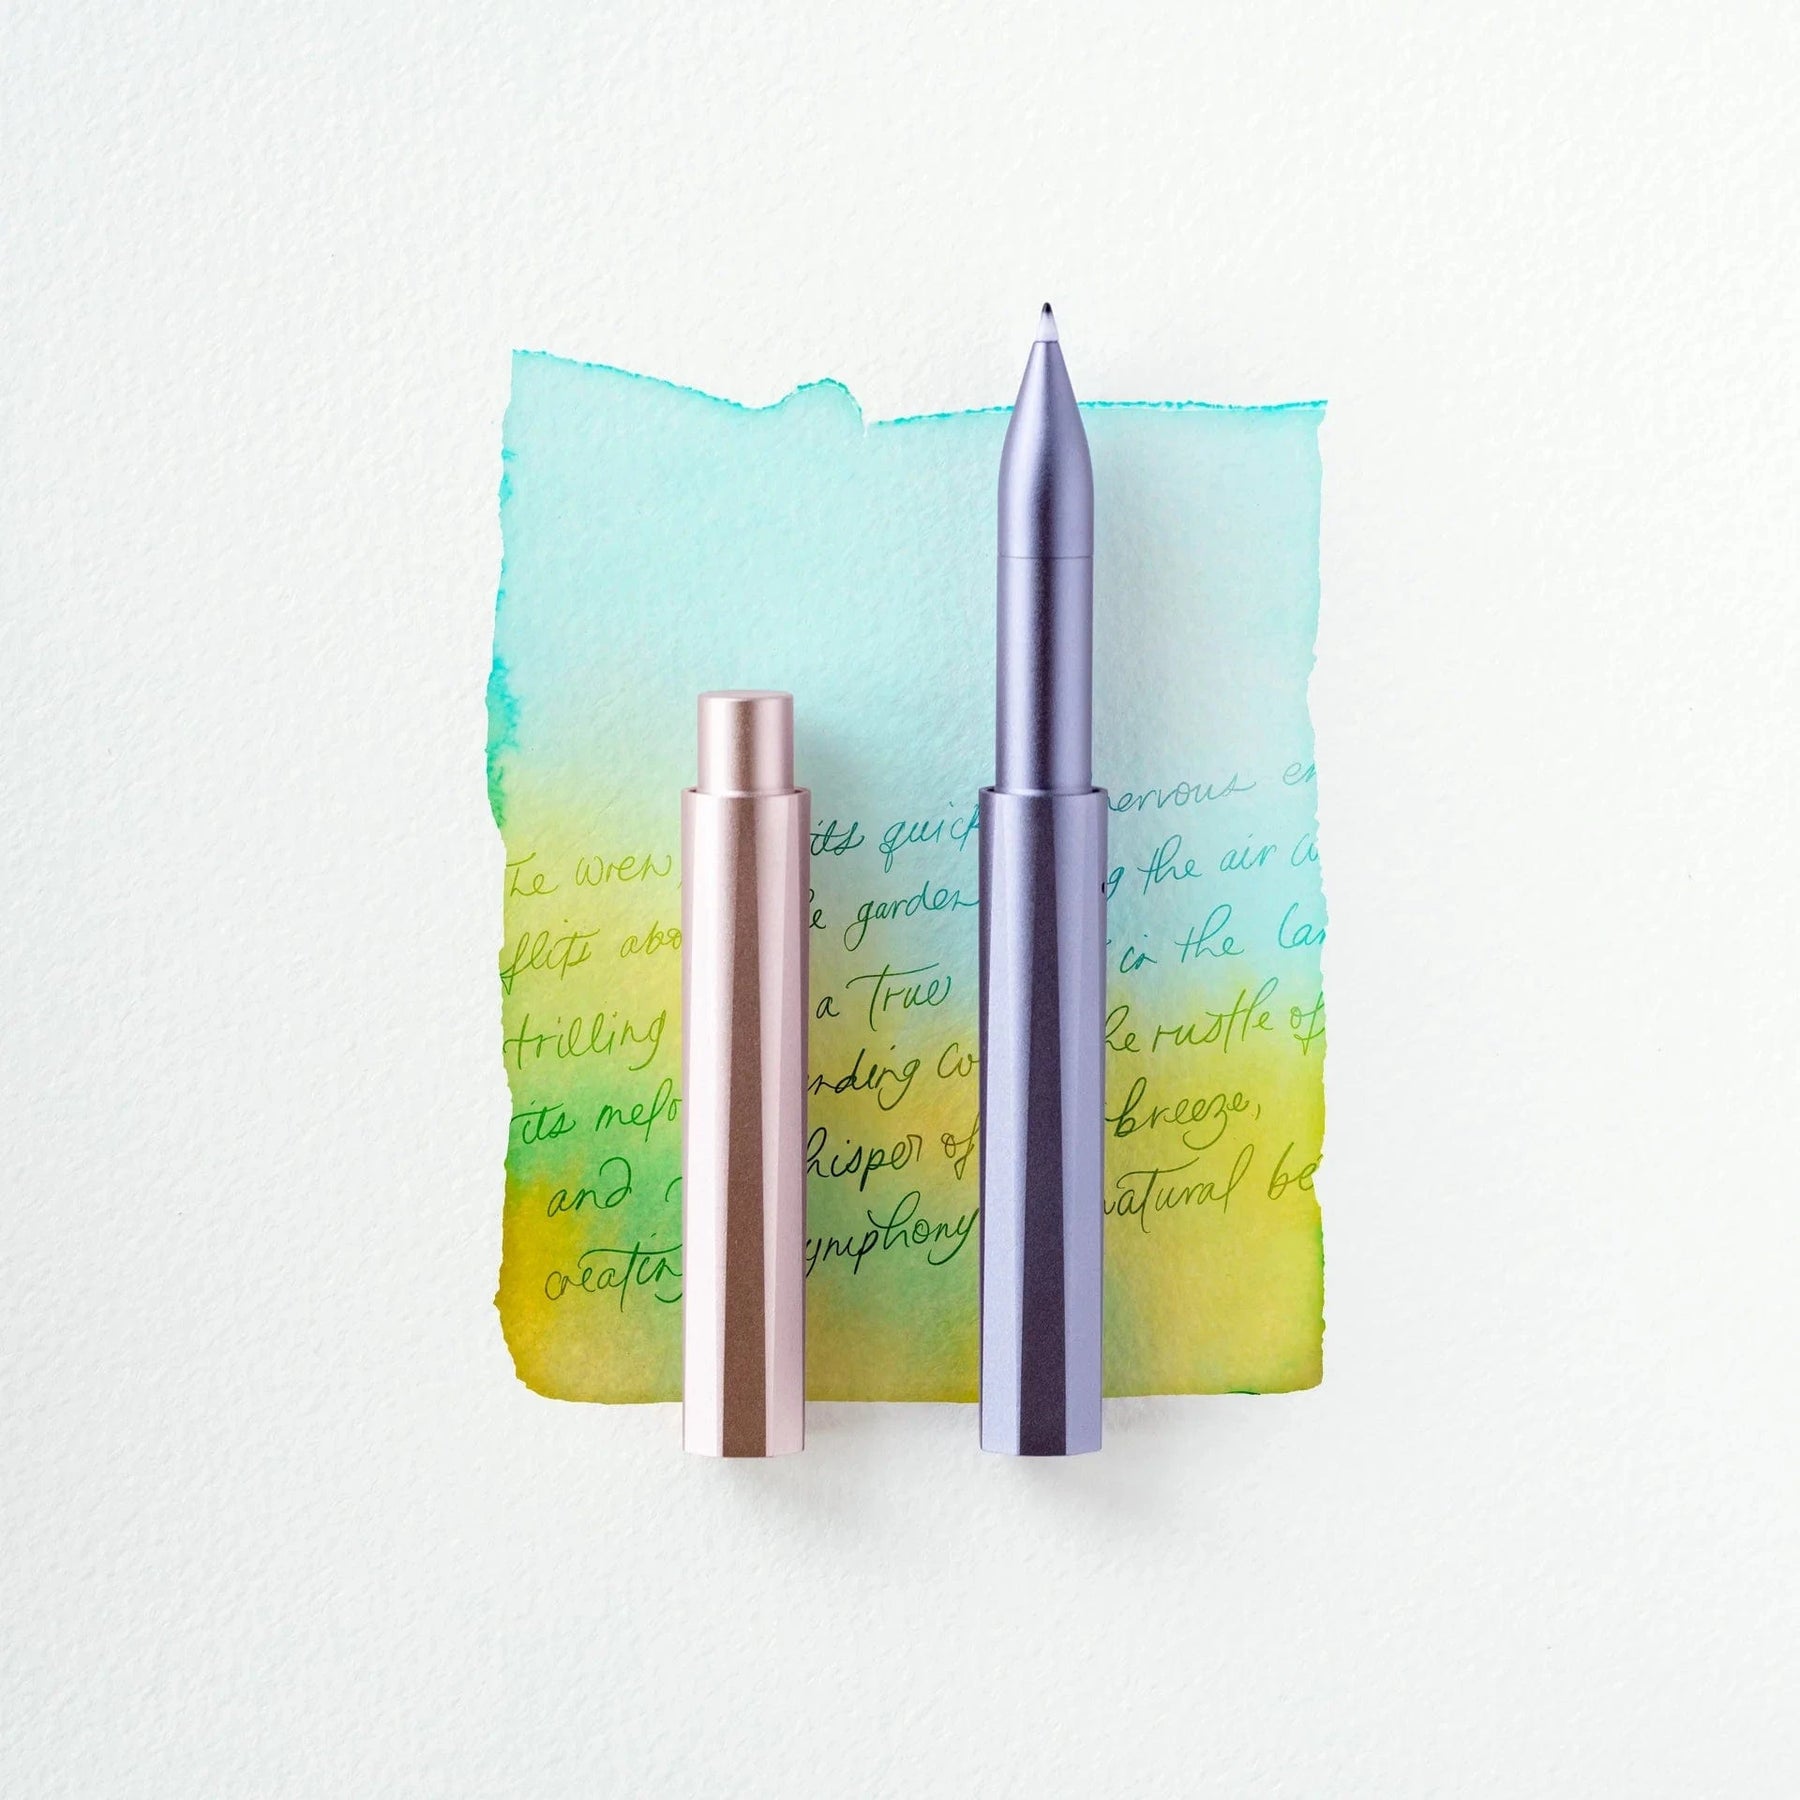 The wren, its quick nervous en
flits abo e garden g the air a
trilling a true in the lan
its melo nding co he rustle of
and hisper of breeze,
creatin ymphony natural be